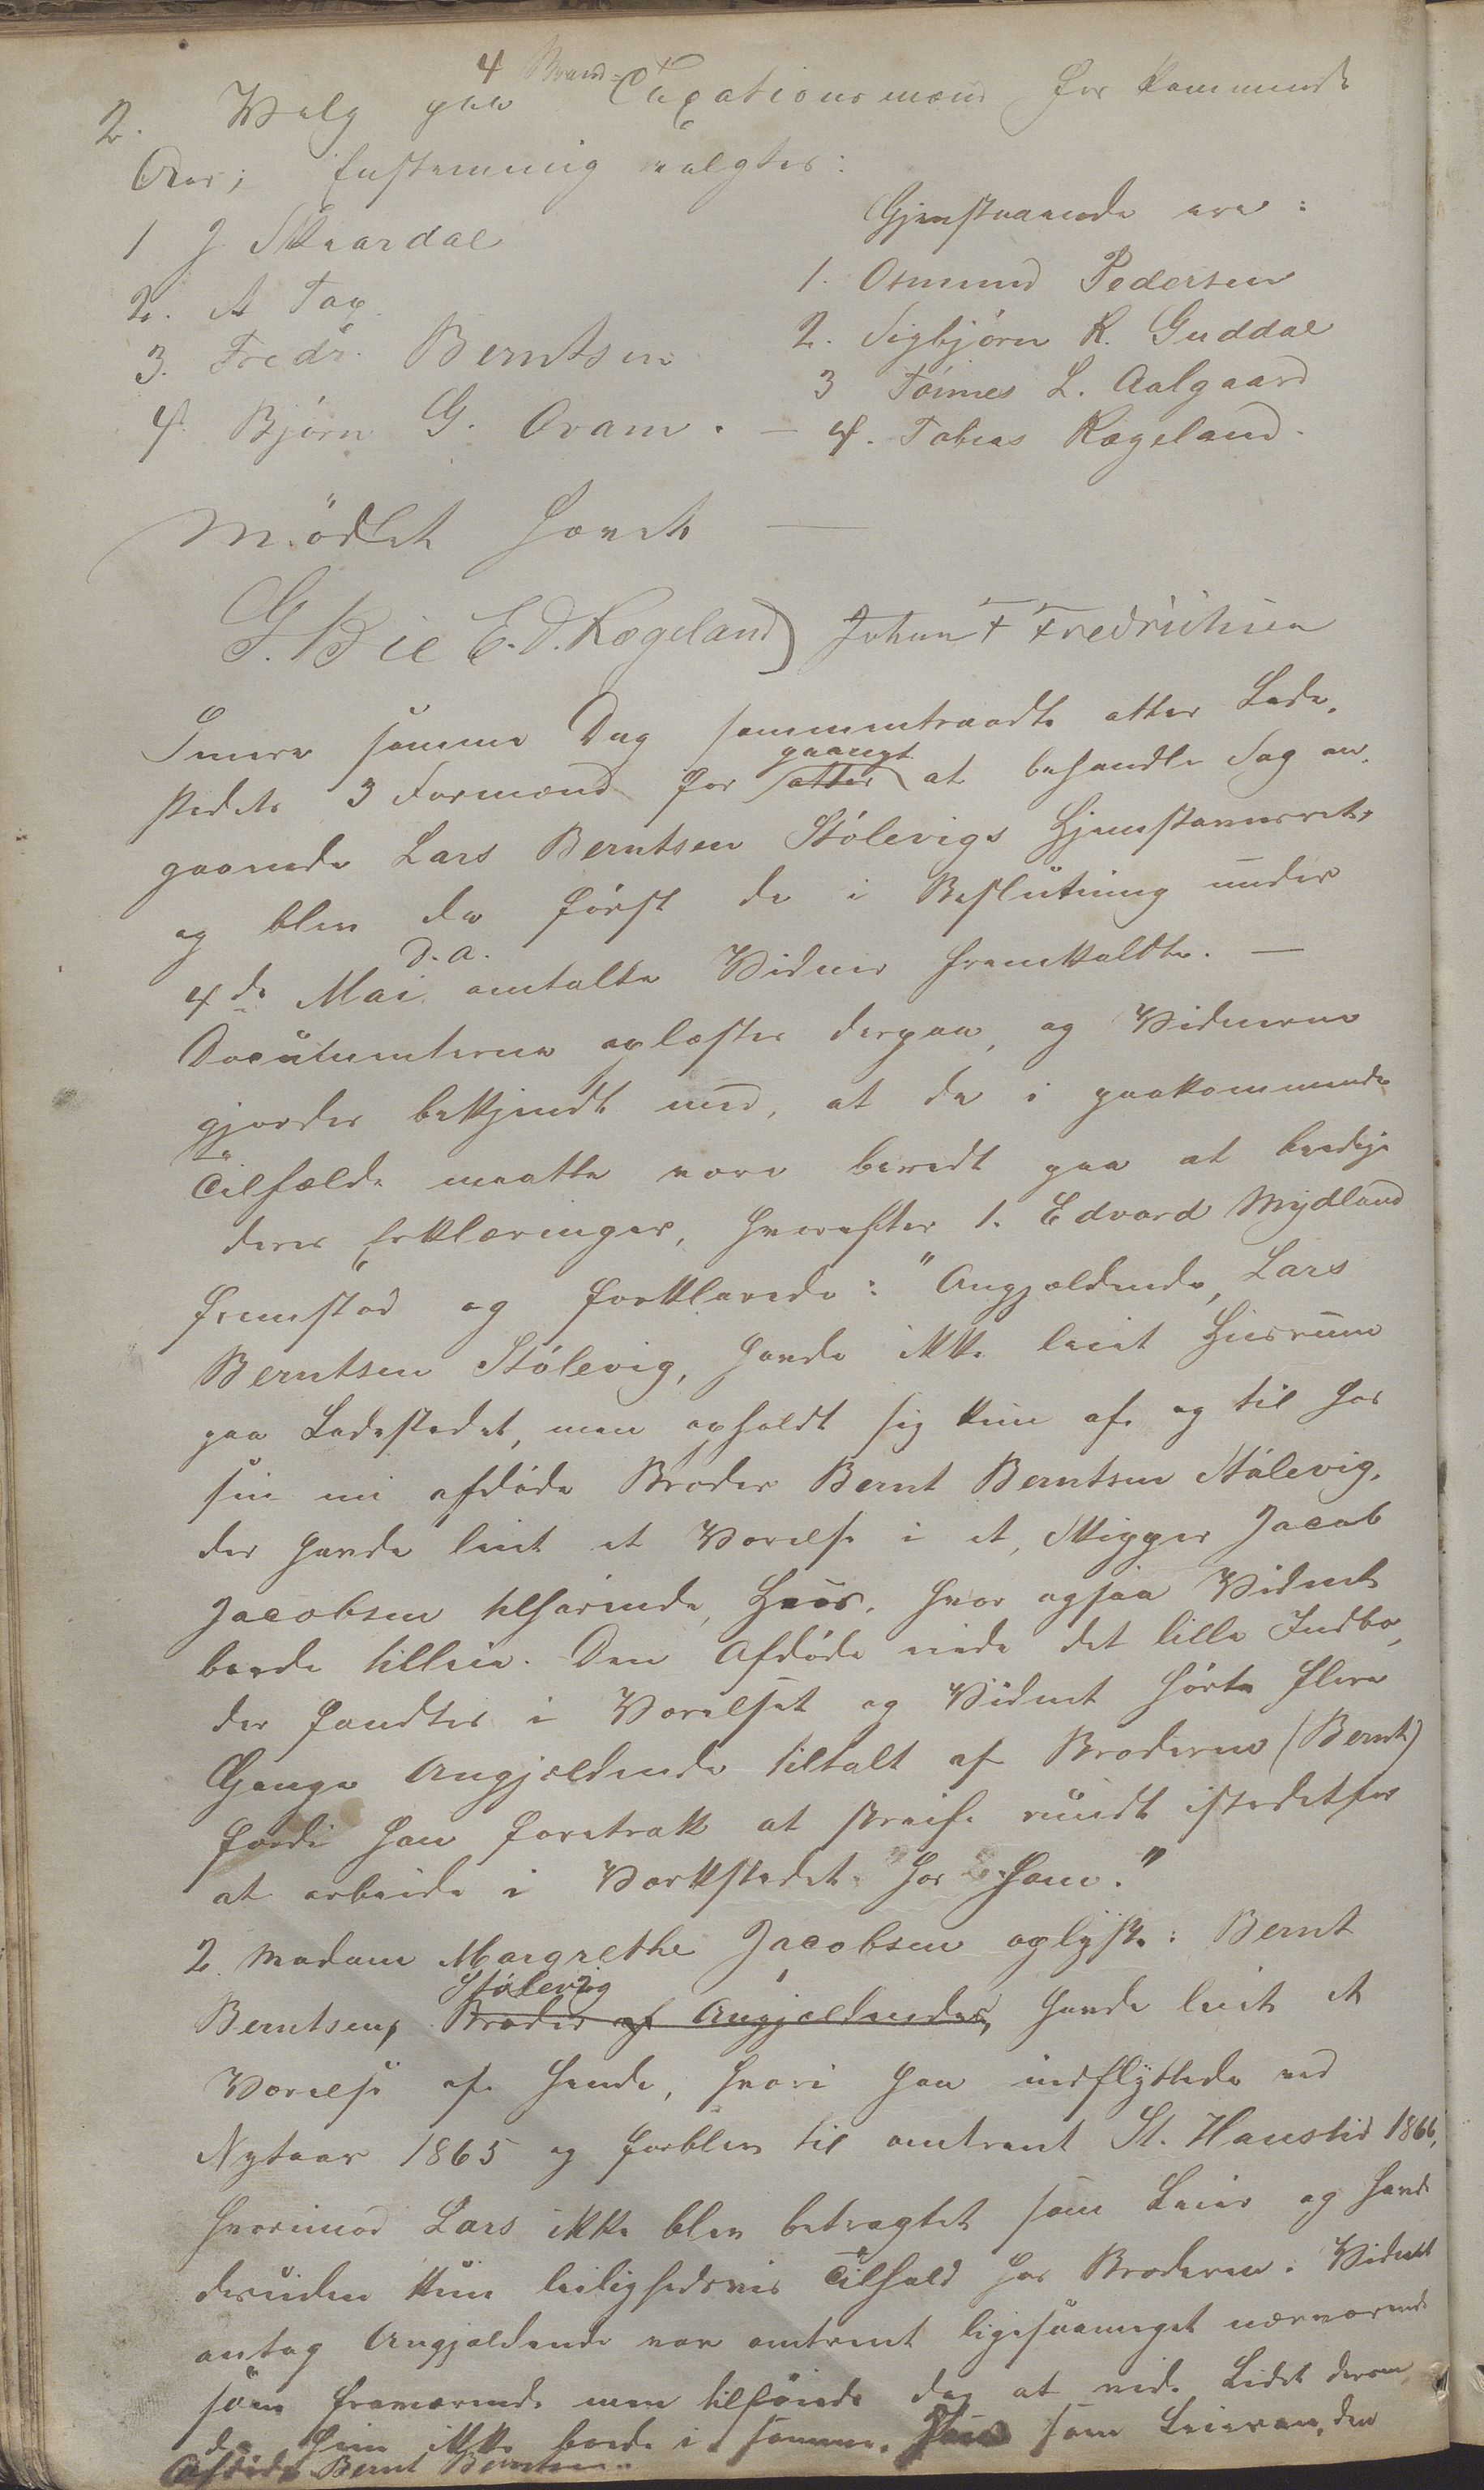 2. Valg paa 4 Brand-Taxationsmænd for kommende
Aar; Enstemmig valgtes:
1 J Skaardal
2. A Tax
3. Fredr. Berntsen
4 Bjørn G. Oram. —
Gjenstaaende ere:
1. Osmund Pedersen
2. Sigbjørn K. Guddal
3 Tönnes L. Aalgaard
4. Tobias Rægeland.
Mødet hævet —
G. Bie E. O. Rægeland Johan F Fredrichsen
Senere samme Dag sammentraadte atter Lade-
stedets 3 Formænd for paanyt at behandle Sag an-
gaaende Lars Berntsen Stölevigs Hjemstavnsret,
og blev da først de i Beslutning under
4de Mai d. A. omtalte Vidner fremkaldte. —
Documenterne oplæstes derpaa, og Vidnerne
gjordes bekjendt med, at de i paakommende
Tilfælde maatte være beredt paa at beedige
deres Erklæringer, hvorefter 1. Edvard Mydland
fremstod og forklarede: "Angjældende, Lars
Berntsen Stölevig, havde ikke leiet Huusrum
paa Ladestedet, men opholdt sig kun af og til hos
sin nu afdöde Broder Bernt Berntsen Stölevig,
der havde leiet et Værelse i et, Skipper Jacob
Jacobsen tilhörende, Huus, hvor ogsaa Vidnet
boede tilleie. Den Afdöde eiede det lille Indbo,
der fandtes i Værelset og Vidnet hörte flere
Gange Angjældende tiltalt af Broderen (Bernt)
fordi han foretrak at streife rundt istedetfor
at arbeide i Værkstedet hos ham."
2. Madam Margrethe Jacobsen oplyste: Bernt
Berntsen Stölevig Broder af Angjældende, havde leiet et
Værelse af hende, hvori han indflyttede ved
Nytaar 1865 og forblev til omtrent St. Hanstid 1866,
hvorimod Lars ikke blev betragtet som Leier og havde
desuden kun leilighedsvis Tilhold hos Broderen. Vidnet
antog Angjældende var omtrent ligesaameget nærværende
som fraværende men tilföiede dog at vide Lidet derom,
da hun ikke boede i samme Huus som Leieren, den
Afdöde Bernt Berntsen.